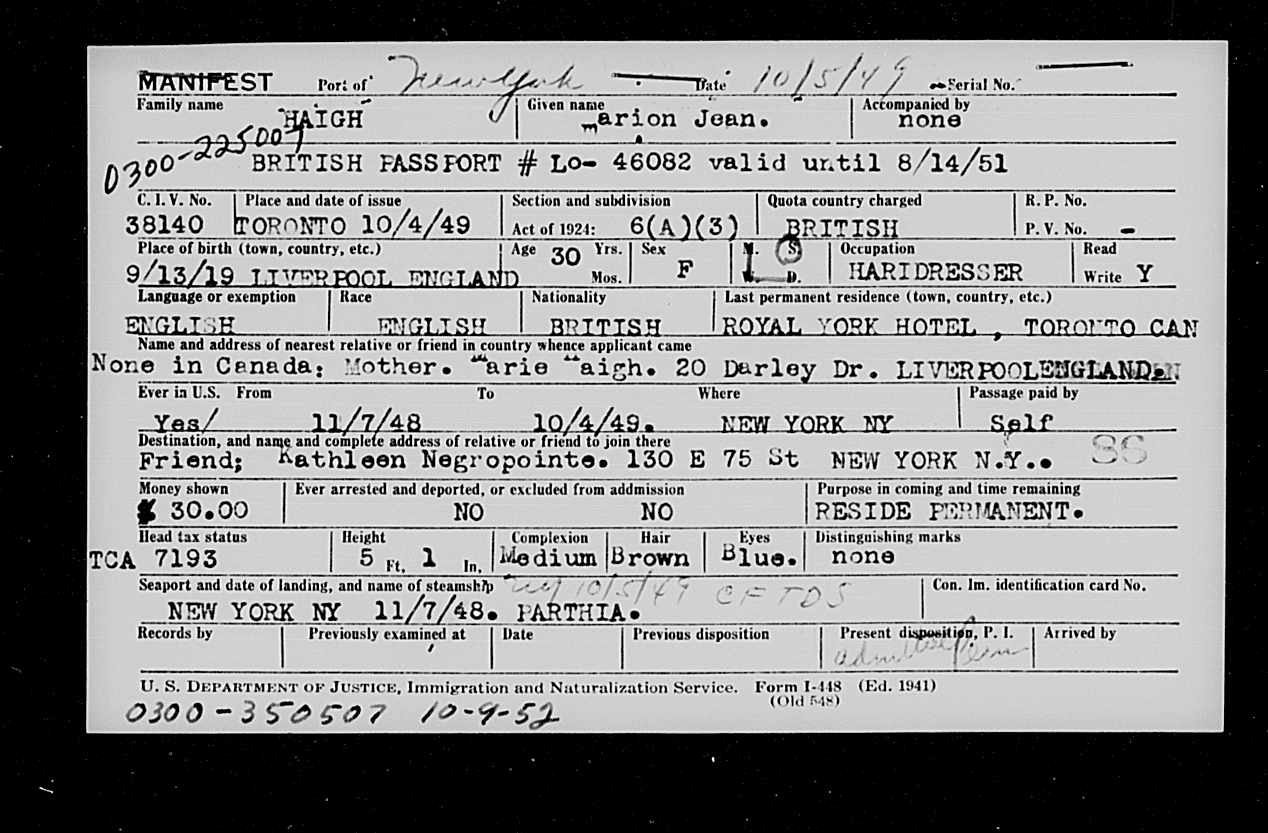 MANIFEST Port of New York Date 10/5/49 Serial No.
Family name Given name Accompanied by
HAIGH marion Jean. none
0300-225007
BRITISH PASSPORT # Lo- 46082 valid until 8/14/51
C. I. V. No. Place and date of issue Section and subdivision Quota country charged R. P. No.
38140 TORONTO 10/4/49 Act of 1924: 6(A)(3) BRITISH P. V. No. -
Place of birth (town, country, etc.) Age 30 Yrs. Sex M. S. Occupation Read
9/13/19 LIVERPOOL ENGLAND Mos. F D. HARIDRESSER Write Y
Language or exemption Race Nationality Last permanent residence (town, country, etc.)
ENGLISH ENGLISH BRITISH ROYAL YORK HOTEL , TORONTO CAN
Name and address of nearest relative or friend in country whence applicant came
None in Canada; Mother. Marie Haigh. 20 Darley Dr. LIVERPOOLENGLAND.
Ever in U.S. From To Where Passage paid by
Yes/ 11/7/48 10/4/49. NEW YORK NY Self
Destination, and name and complete address of relative or friend to join there
Friend; Kathleen Negroponte. 130 E 75 St NEW YORK N.Y.. 86
Money shown Ever arrested and deported, or excluded from addmission Purpose in coming and time remaining
$ 30.00 NO NO RESIDE PERMANENT.
Head tax status Height Complexion Hair Eyes Distinguishing marks
TCA 7193 5 Ft. 1 In. Medium Brown Blue. none
Seaport and date of landing, and name of steamship NY 10/5/49 CFTDS Con. Im. identification card No.
NEW YORK NY 11/7/48. PARTHIA.
Records by Previously examined at Date Previous disposition Present disposition, P. I. Arrived by
admitted
U. S. DEPARTMENT OF JUSTICE, Immigration and Naturalization Service. Form I-448 (Ed. 1941)
(Old 548)
0300-350507 10-9-52